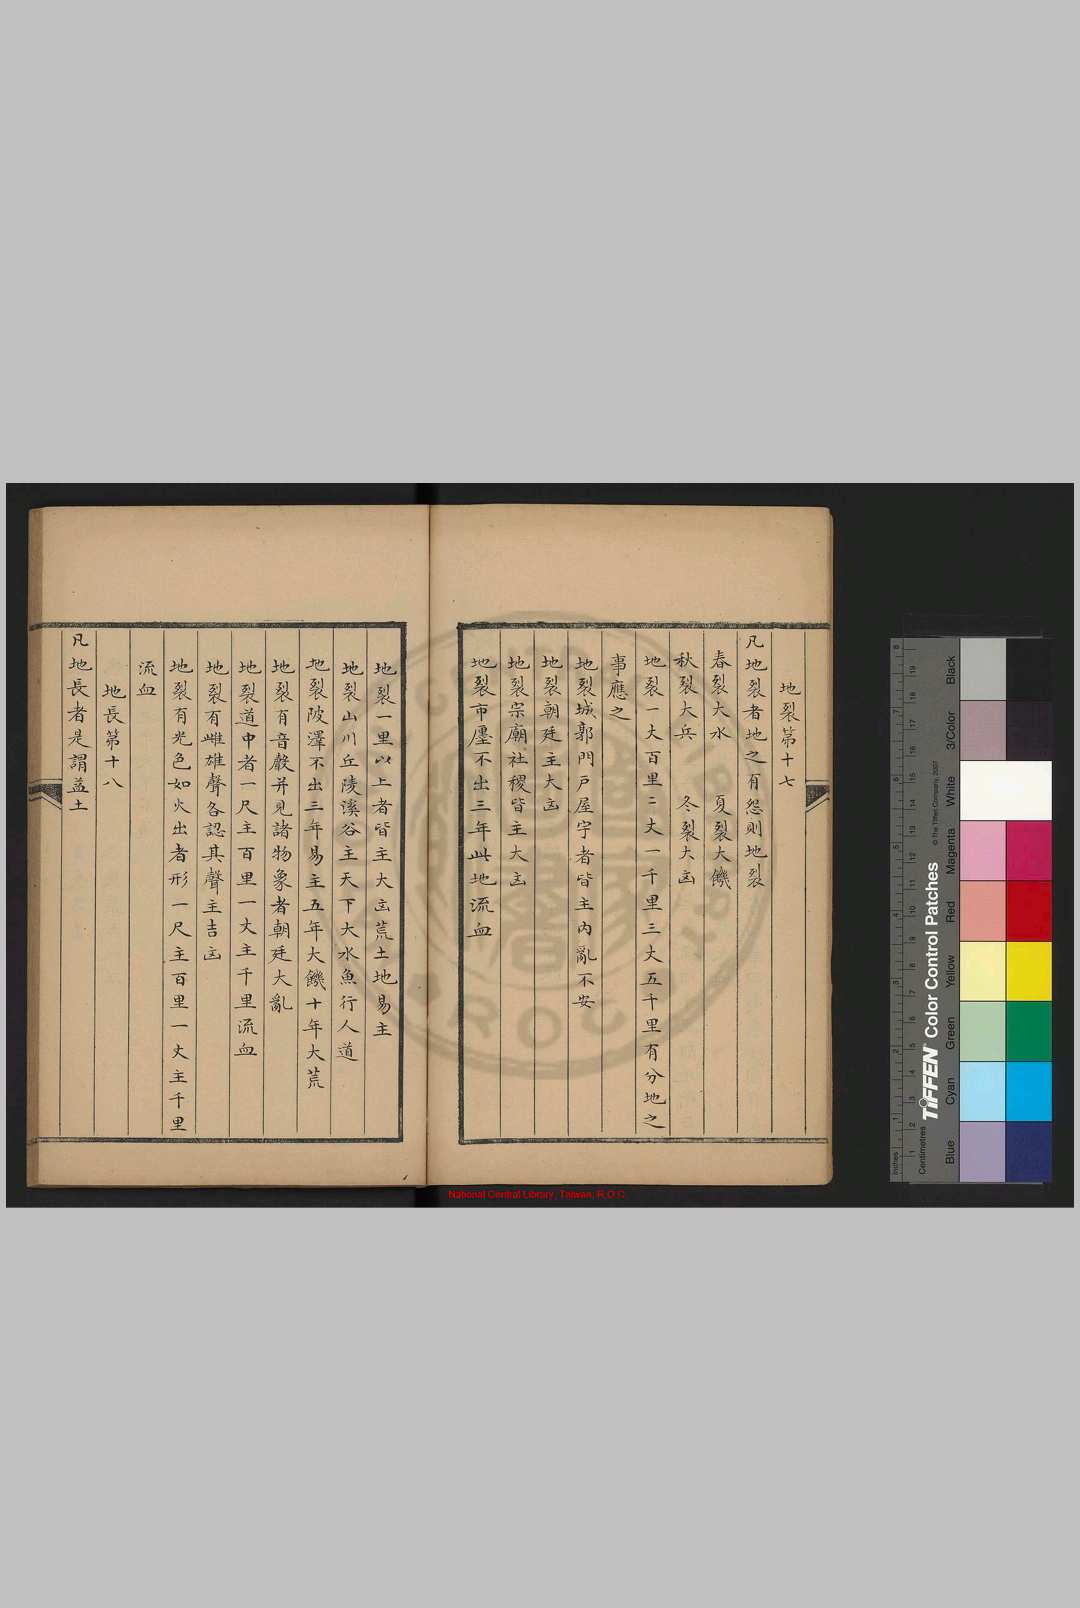 地裂第十七
凡地裂者地之有怨則地裂
春裂大水　夏裂大饑
秋裂大兵　冬裂大凶
地裂一丈百里二丈一千里三丈五千里有分地之
事應之
地裂城郭門戶屋宇者皆主內亂不安
地裂朝廷主大凶
地裂宗廟社稷皆主大凶
地裂市廛不出三年此地流血
地裂一里以上者皆主大凶荒土地易主
地裂山川丘陵溪谷主天下大水魚行人道
地裂陂澤不出三年易主五年大饑十年大荒
地裂有音殸并見諸物象者朝廷大亂
地裂道中者一尺主百里一丈主千里流血
地裂有雌雄聲各認其聲主吉凶
地裂有光色如火出者形一尺主百里一丈主千里
流血
地長第十八
凡地長者是謂益土
National Central Library, Taiwan, R.O.C
Inches
Centimetres
TIFFEN Color Control Patches
© The Tiffen Company, 2007
Blue
Cyan
Green
Yellow
Red
Magenta
White
3/Color
Black